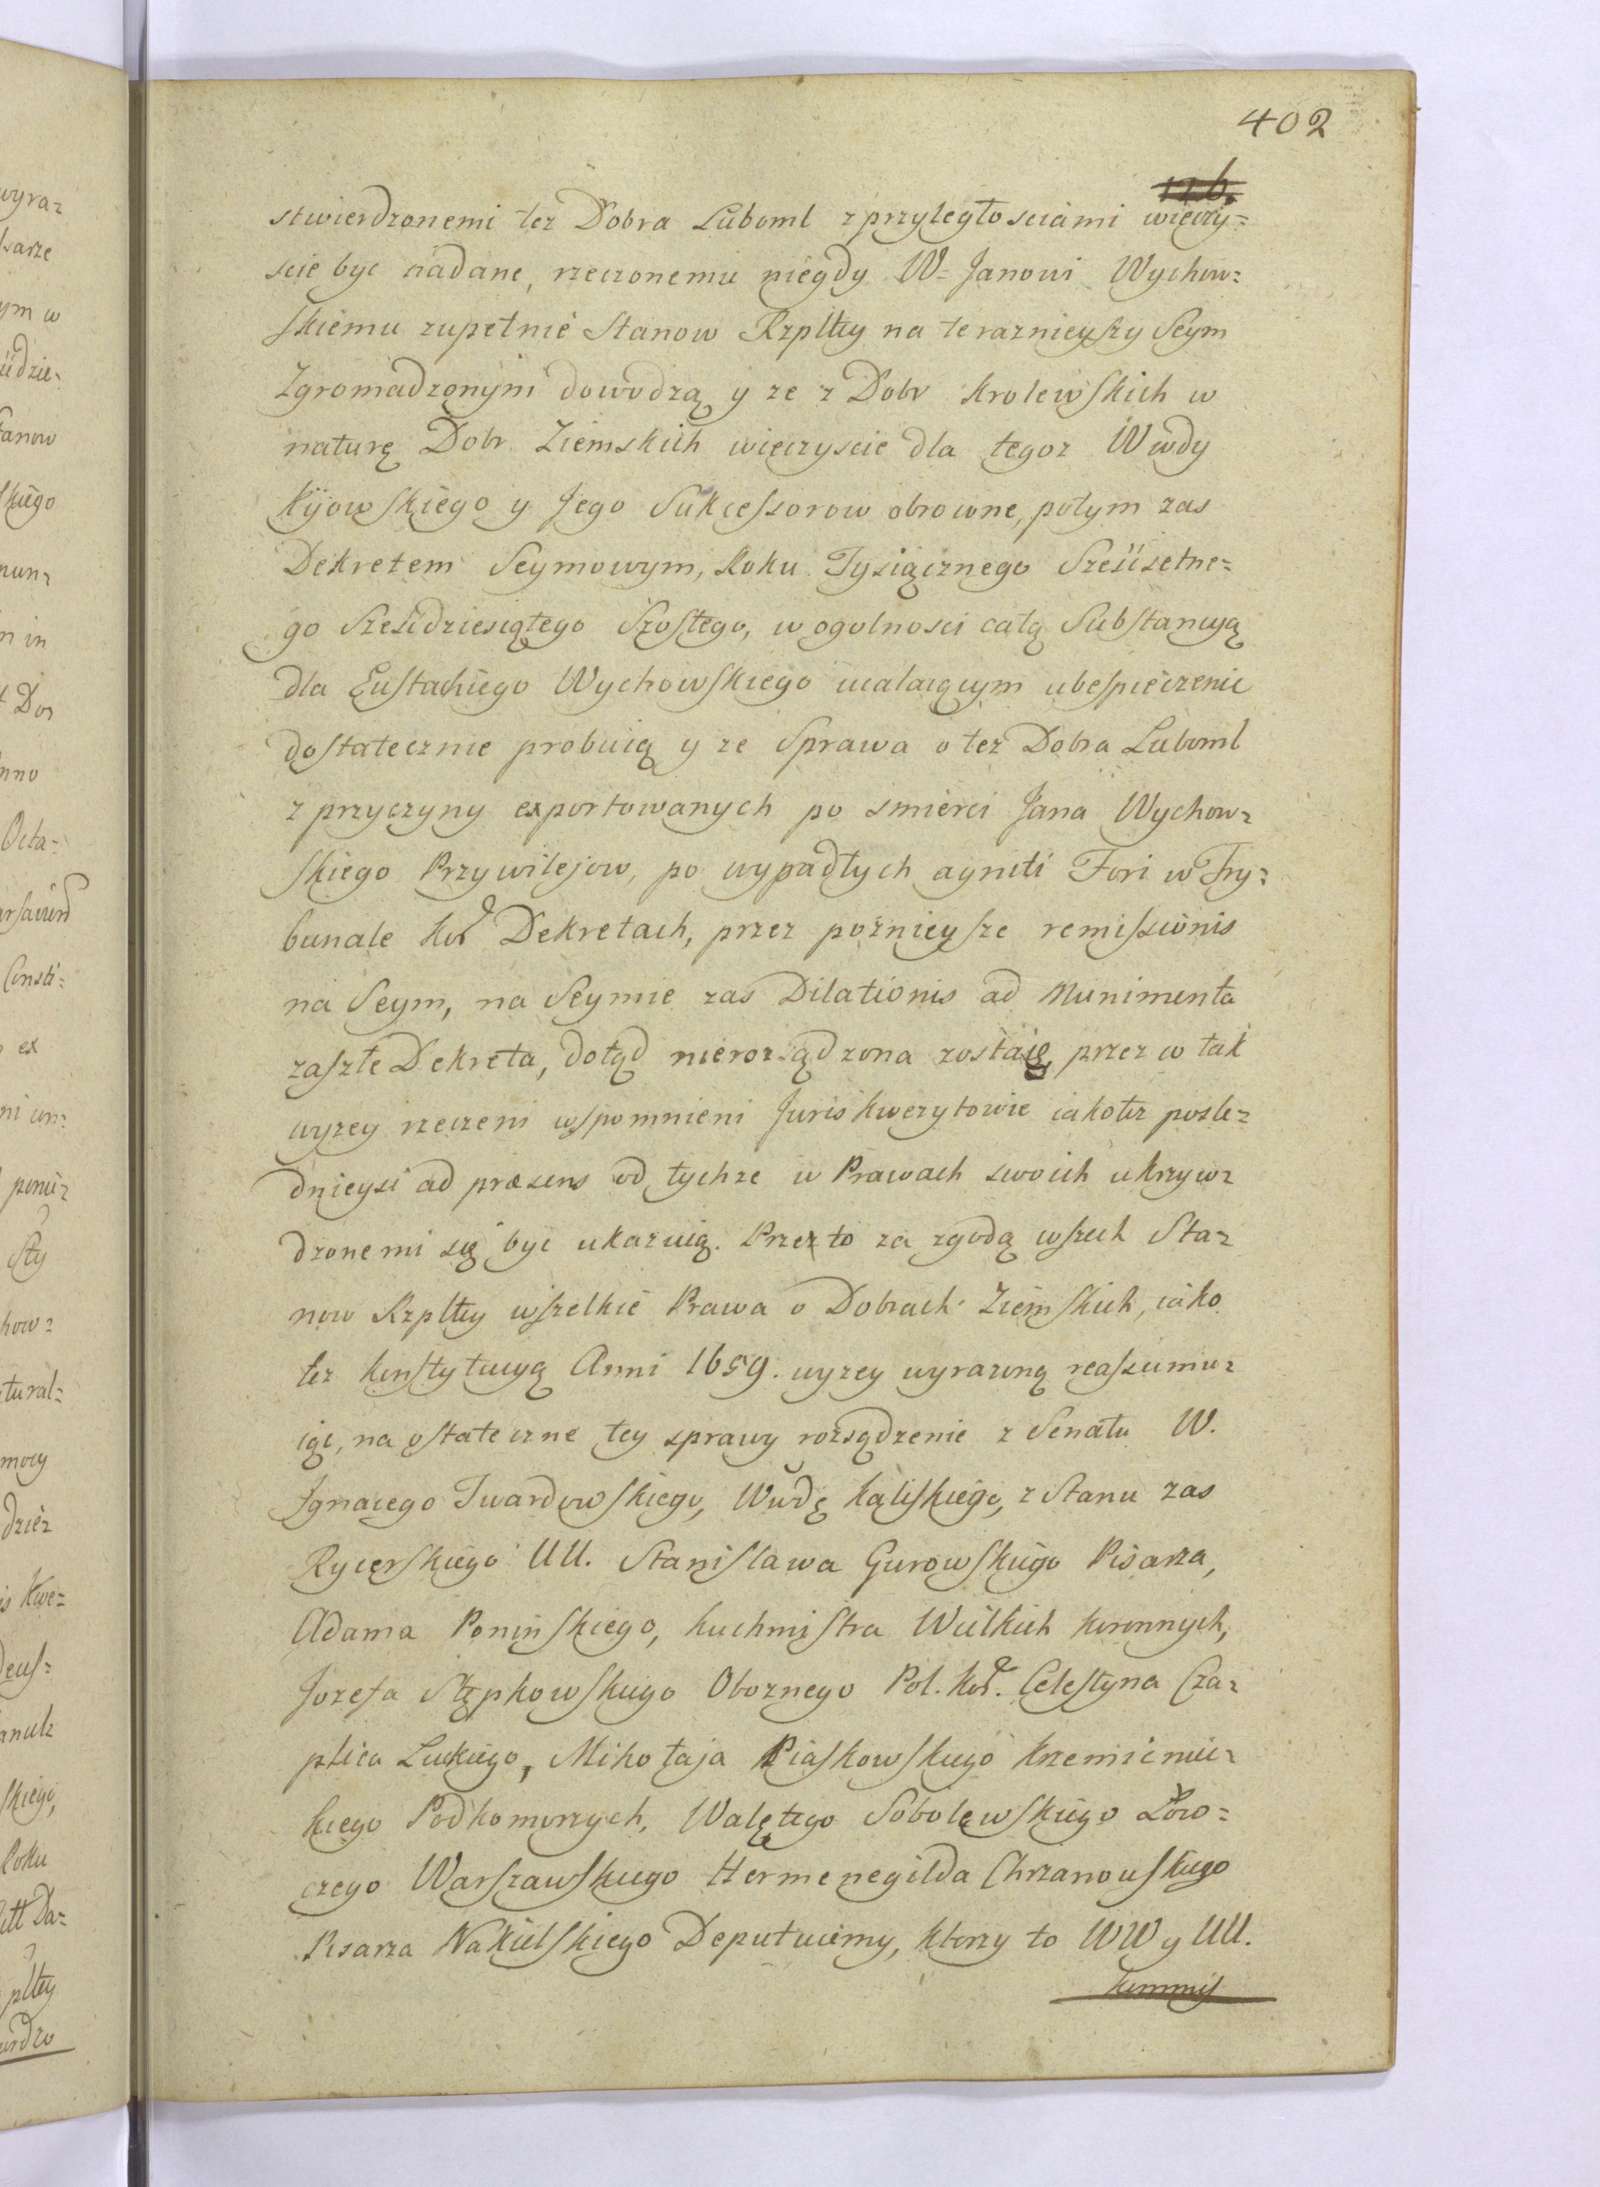 402
126.
stwierdzonemi też Dobra Luboml z przyległosciami wieczy=
scie byc nadane, rzeczonemu niegdy W= Janowi Wychow=
skiemu zupełnie Stanow Rzpltey na teraznieyszy Seym
Zgromadzonym dowodzą y ze z Dobr Krolewskich w
naturę Dobr Ziemskich wieczyscie dla tegoz Wwdy
Kijowskiego y Jego Sukcessorow obrowne, potym zas
Dekretem Seymowym, Roku Tysiącznego Sześćsetne=
go Sześćdziesiątego Szostego, w ogolnosci całą Substancyą
dla Eustachiego Wychowskiego ucalaiącym ubespieczenie
dostatecznie probuią y ze Sprawa o też Dobra Luboml
z przyczyny exportowanych po smierci Jana Wychow=
skiego Przywilejow, po wypadłych agniti Fori w Try=
bunale Kor Dekretach, przez poznieysze remissionis
na Seym, na Seymie zas Dilationis ad Munimenta
zaszłe Dekreta, dotąd nierozsądzona zostaię, przez w tak
wyzey rzeczeni wspomnieni Juris kwerytowie iakotez posle=
dnieysi ad præsens od tychze w Prawach swoich ukrzyw=
dzonemi się byc ukazuią. Przez to za zgodą wszech Sta=
now Rzpltey wszelkie Prawa o Dobrach Ziemskich, iako
tez Konstytucyą Anni 1659. wyzey wyrazoną reassumu=
iąc, na ostateczne tey sprawy rozsądzenie z Senatu W.
Ignacego Twardowskiego, Wwdę Kaliskiego, z Stanu zas
Rycerskiego UU. Stanislawa Gurowskiego Pisarza,
Adama Poninskiego, Kuchmistra Wielkich Koronnych,
Jozefa Stępkowskiego Oboznego Pol. Kor. Celestyna Cza=
plica Luckiego, Mikołaja Piaskowskiego Krzemienie=
kiego Podkomorzych, Walętego Sobolewskiego Łow=
czego Warszawskiego Hermenegilda Chrzanowskiego
Pisarza Nakielskiego Deputuiemy, ktorzy to WW y UU.
Kommis